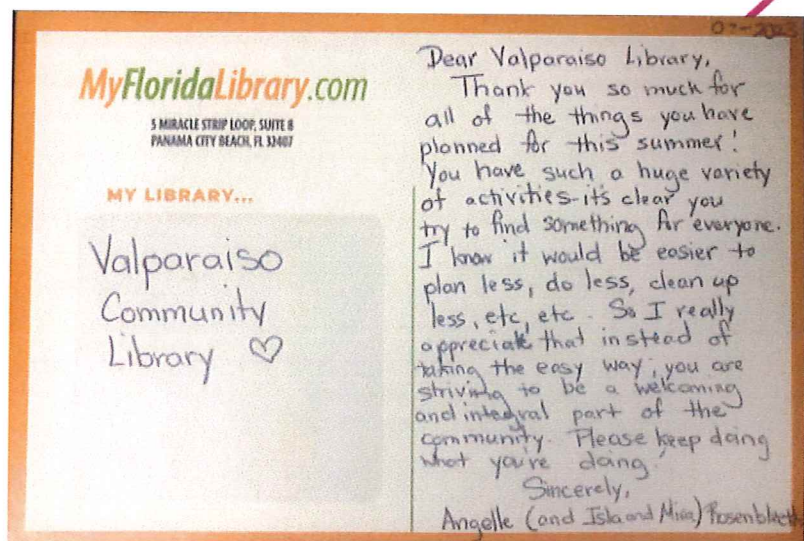 07-2023
MyFloridaLibrary.com
5 MIRACLE STRIP LOOP, SUITE 8
PANAMA CITY BEACH, FL 32407
MY LIBRARY...
Valparaiso
Community
Library ♡
Dear Valparaiso Library,
Thank you so much for
all of the things you have
planned for this summer!
You have such a huge variety
of activities-it's clear you
try to find something for everyone.
I know it would be easier to
plan less, do less, clean up
less, etc, etc. So I really
appreciate that instead of
taking the easy way, you are
striving to be a welcoming
and integral part of the
community. Please keep doing
what you're doing!
Sincerely,
Angelle (and Isla and Mira)